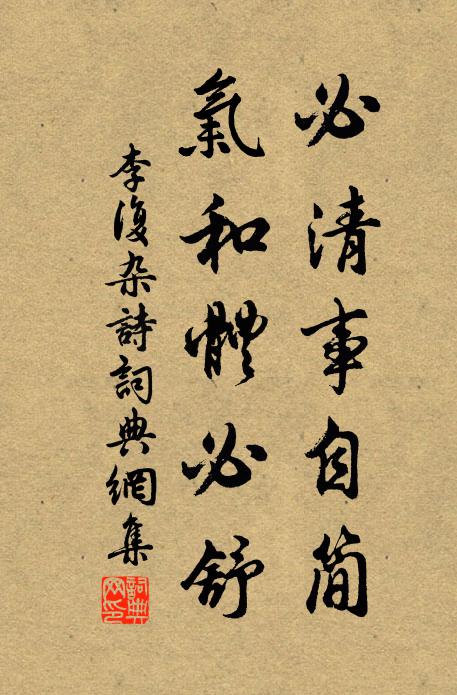 必清事自簡
氣和體必舒
李復杂詩詞典網集
詞典网印